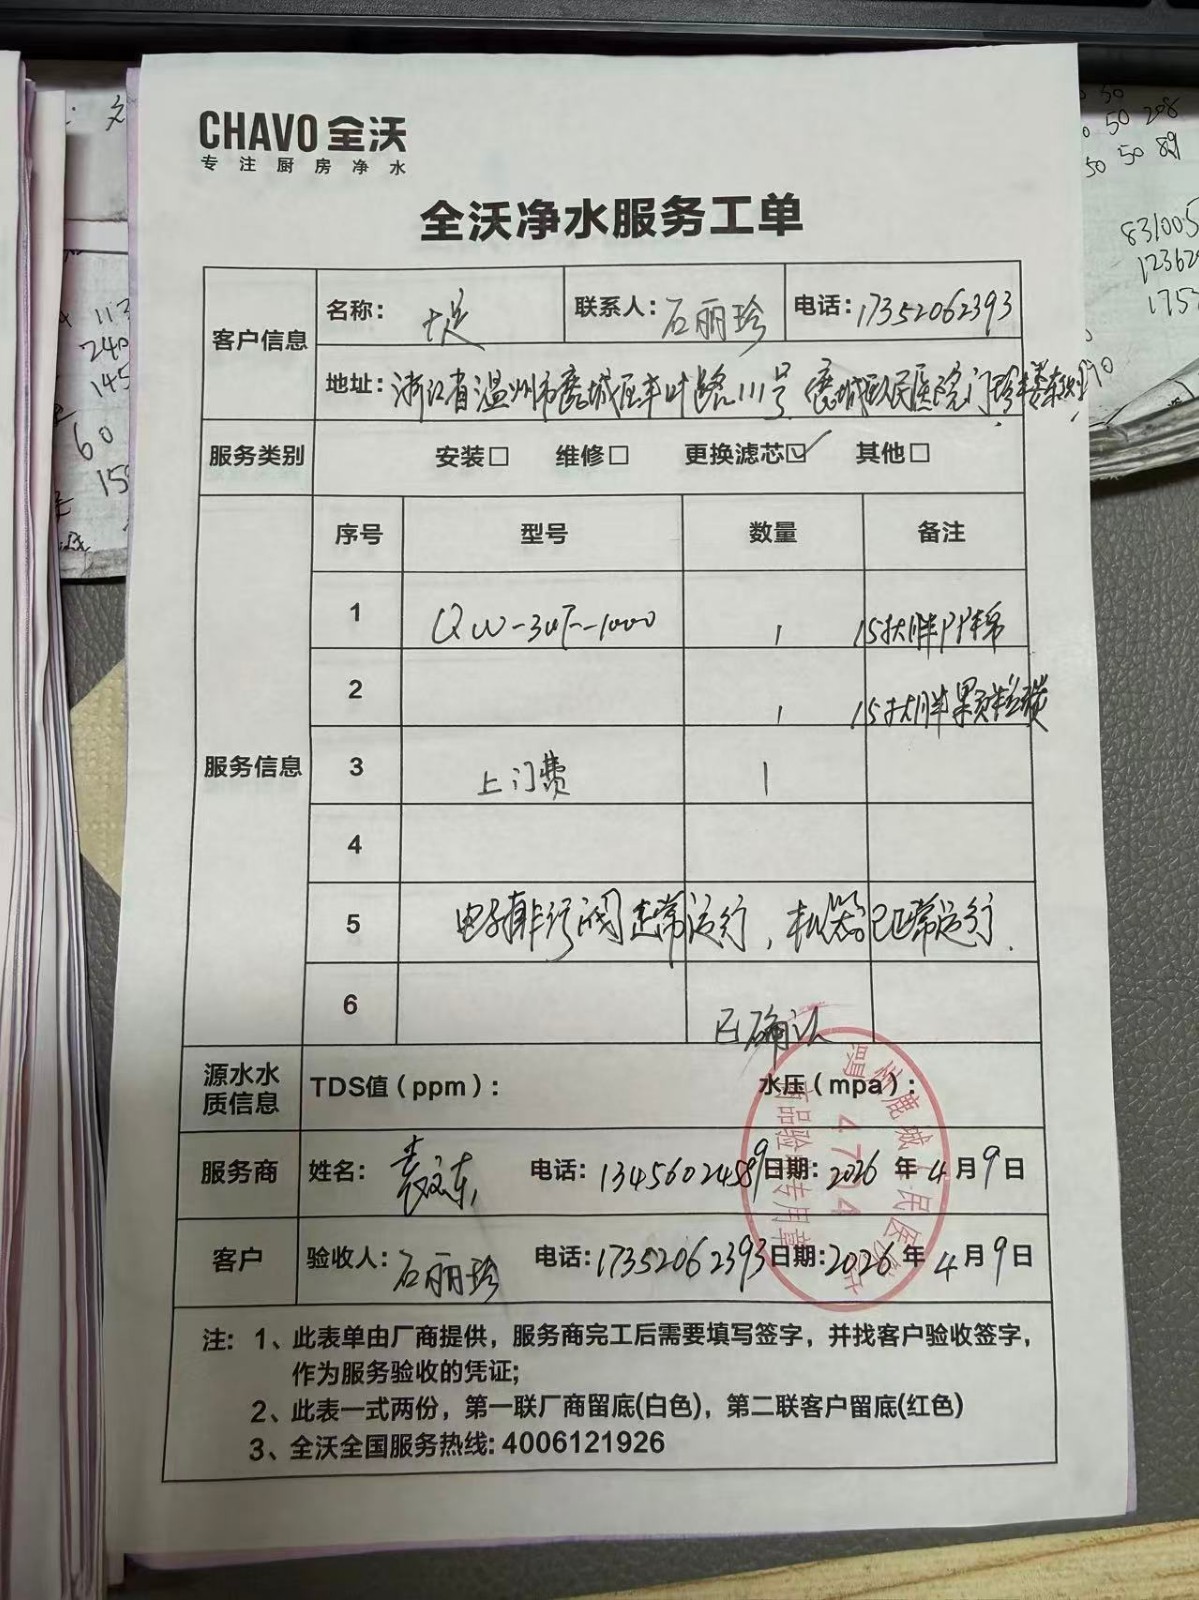 CHAVO 全沃
专注厨房净水
全沃净水服务工单
客户信息
名称：
联系人：石丽珍
电话：17352062393
地址：浙江省温州市鹿城区车叶路111号 鹿城区人民医院门诊
服务类别 安装□ 维修□ 更换滤芯☑ 其他□
服务信息
序号 型号 数量 备注
1 QW- -1000 1 15大胖PP棉
2 1 15大胖颗粒碳
3 上门费 1
4
5 电子排污阀正常运行，机器已正常运行.
6 已确认
源水水质信息 TDS值（ppm）： 水压（mpa）：
服务商 姓名： 电话：13456024589 日期：2026 年 4 月 9 日
客户 验收人：石丽珍 电话：17352062393 日期：2026 年 4 月 9 日
注：1、此表单由厂商提供，服务商完工后需要填写签字，并找客户验收签字，
作为服务验收的凭证；
2、此表一式两份，第一联厂商留底(白色)，第二联客户留底(红色)
3、全沃全国服务热线：4006121926
4704
113
240
145
60
50 208
50 50 89